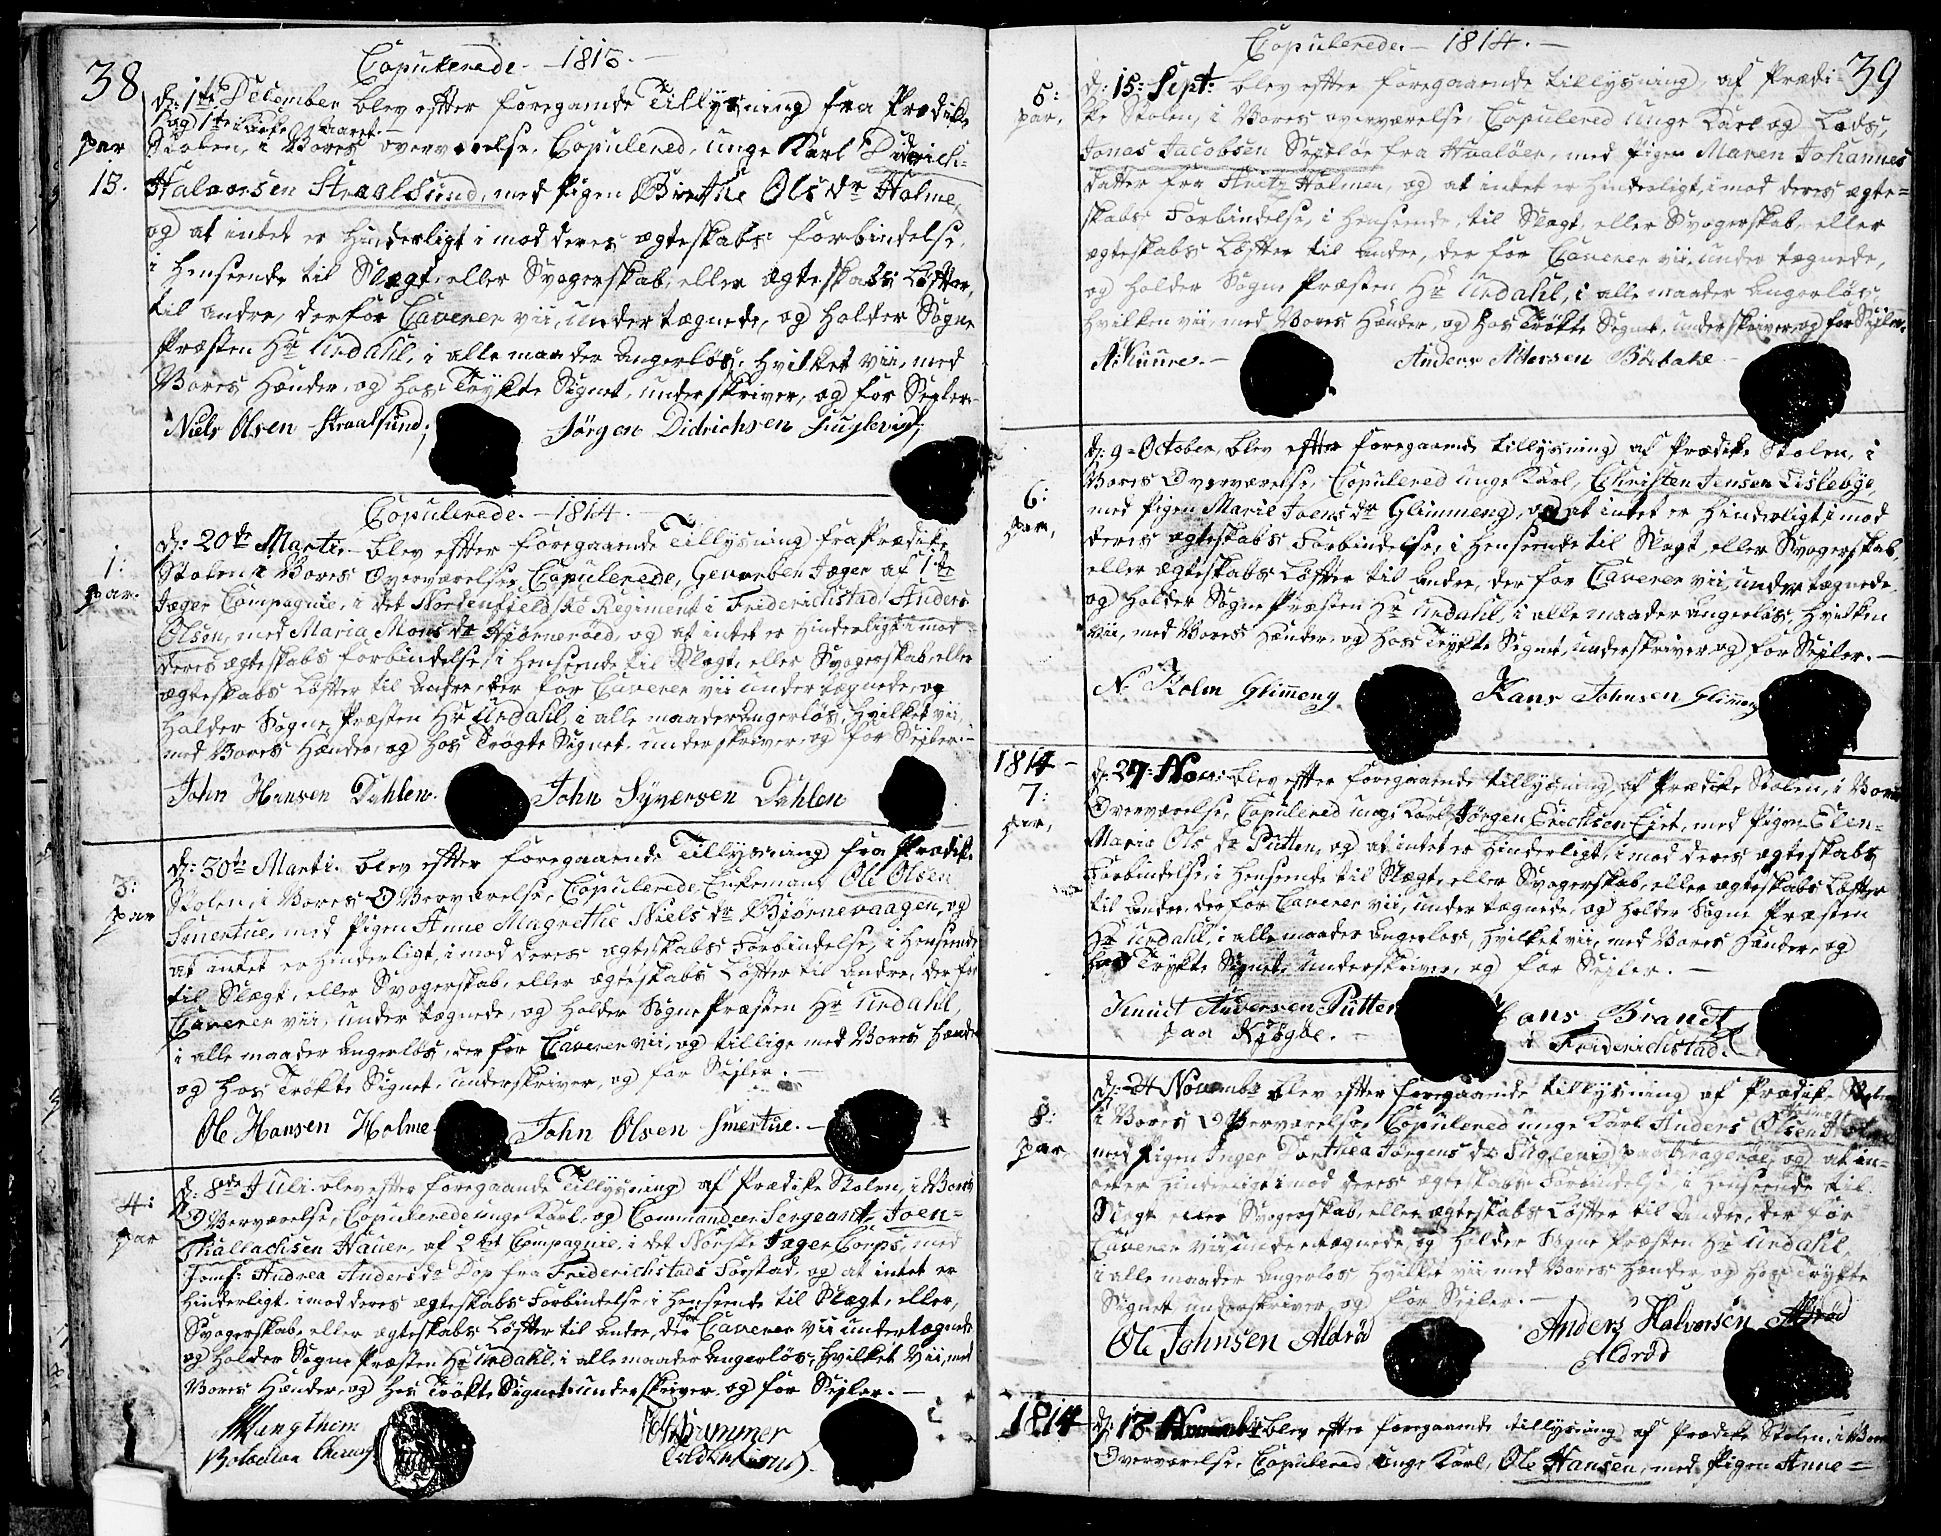 38
Copulerede. — 1813. —
d: 1te December blev efter foregaaende Tillysning fra Prædike
og 1te Kirke Aaret.
par
Stolen, i Vores overværelse, Copulered, unge Karl Didrich
13.
Halvorsen Straalsund, med Pigen Birthe Ols dr Holme,
og at intet er Hinderligt i mod deres ægteskabs forbindelse,
i Henseende til Slægt, eller Svogerskab, eller Ægteskabs Løfter,
til andre, derfor Caverer vii, under tægnede, og holder Sogne
Præsten Hr Urdahl, i alle maader angerløs, Hvilket vii, med
Vores Hænder, og hos Trykte Signet, underskriver, og for Sejler.
Niels Olsen Straalsund, Jørgen Didrichsen Fuglevig,
Copulerede. — 1814. —
1:
par.
d: 20de Marti. blev efter foregaaende Tillysning fra Prædike
Stolen, i Vores Overværelse, Copulerede, Gevorben Jæger af 1te
Jæger Compagnie, i det Nordenfieldske Regiment i Friderichstad, Anders
Olsen, med Maria Mons dr Hjørnerøed, og at intet er Hinderligt i mod
deres ægteskabs forbindelse, i Henseende til Slægt, eller Svogerskab, eller
ægteskabs Løfter til Andre, der for Caverer vii under tægnede, og
holder Sogne Præsten Hr Urdahl, i alle maader angerløs, Hvilket vii,
med Vores Hænder, og hos Trøgte Signet, underskriver, og for Sejler. —
John Hansen Dahlen. John Syversen Dahlen
3:
par
d: 30te Marti. blev efter foregaaende Tillysning fra Prædike
Stolen, i Vores Overværelse, Copulerede, Enkemand Ole Olsen
Smertue, med Pigen Anne Magrethe Niels dr Bjørnevaagen, og
at intet er Hinderligt, i mod deres ægteskabs Forbindelse, i Henseende
til Slægt, eller Svogerskab, eller ægteskabs Løfter til Andre, der for
Caverer vii, under tægnede, og holder Sogne Præsten Hr Urdahl,
i alle maader angerløs, der for Caverer vii, og tillige med Vores Hænder
og hos Trøkte Signet, underskriver, og for Sejler. —
Ole Hansen Holme. John Olsen Smertue. —
4:
par
d: 8de Juli. blev efter foregaande Tillysning af Prædike Stolen, i Vores
Overværelse, Copulerede unge Karl, og Commandeer Sergeant, Joen
Thiallachsen Hauer, af 2det Compagnie, i det Norske Jæger Corps, med
Jomf: Andrea Anders dr Dop fra Friderichstads Forstad, og at intet er
Hinderligt, i mod deres ægteskabs Forbindelse, i Henseende til Slægt, eller,
Svogerskab, eller ægteskabs Løfter til Andre, der for Caverer vii undertægnede
og holder Sogne Præsten Hr Urdahl, i alle maader angerløs, Hvilket Vii, med
Vores Hænder, og hos Trøkte Signet, underskriver, og for Sejler. —
39
Copulerede. — 1814. —
5:
par,
d: 15: Sept: blev efter foregaaende tillysning, af Prædi-
ke Stolen, i Vores overværelse, Copulered unge Karl og Lods,
Jonas Jacobsen Sejeløe fra Hvaløer, med Pigen Maren Johannes
datter fra Holmen, og at intet er Hinderligt, i mod deres ægte=
skabs Forbindelse, i Henseende, til Slægt, eller Svogerskab, eller
ægteskabs Løfter til Andre, der for Caverer vii, under tægnede,
og holder Sogne Præsten Hr Urdahl, i alle maader angerløs,
Hvilken vii, med Vores Hænder, og hos Trøkte Segnet, underskriver, og for Sejler.
6:
par,
d: 9= October, blev efter foregaaende tillysning af Prædike Stolen, i
Vores Overværelse, Copulered unge Karl, Christen Jensen Tislebye,
med Pigen Marie Joens dr Glimmeng, og at intet er Hinderligt, i mod
deres ægteskabs Forbindelse, i Henseende til Slægt, eller Svogerskab,
eller ægteskabs Løfter til Andre, der for Caverer vii, under tægnede,
og holder Sogne Præsten Hr Urdahl, i alle maader angerløs, Hvilken
vii, med Vores Hænder, og hos Trykte Segnet, underskriver, og for Sejler. —
N. Holm Glimeng Hans Johnsen Glimeng
1814 —
7:
par,
d: 27: Nov: blev efter foregaaende tillysning, af Prædike Stolen, i Vores
Overværelse, Copulered unge Karl Jørgen Erichsen Ejet, med Pigen Elen
Maria Ols dr Putten, og at intet er Hinderligt, i mod deres ægteskabs
Forbindelse, i Henseende til Slægt, eller Svogerskab, eller ægteskabs Løfter
til Andre, der for Caverer vii, under tægnede, og holder Sogne Præsten
Hr Urdahl, i alle maader angerløs, Hvilket vii, med Vores Hænder, og
hos Trykte Signet, underskriver, og for Sejler. —
Knud Andersen Putten Hans Brandt
paa Kjøgøe. — i Friderichstad.
8:
par
d: 24 Novembr blev efter foregaaende tillysning af Prædike Stolen
i Vores Overværelse, Copulered unge Karl Anders Olsen
med Pigen Inger Dorthea Jørgens dr Fuglevig paa Kragerøe, og at in-
tet er Hinderligt i mod deres ægteskabs Forbindelse, i Henseende til
Slægt eller Svogerskab, eller ægteskabs Løfter til Andre, der for
Caverer vii, undertægnede, og holder Sogne Præsten Hr Urdahl,
i alle maader angerløs, Hvilket vii med Vores Hænder, og hos Trykte
Signet, underskriver, og for Sejler. —
Ole Johnsen Aldrød Anders Halvorsen
Aldrød
1814
d: 18 Novembr blev efter foregaaende tillysning af Prædike Stolen, i Vores
Overværelse, Copulered, unge Karl, Ole Hansen, med Pigen Anne=